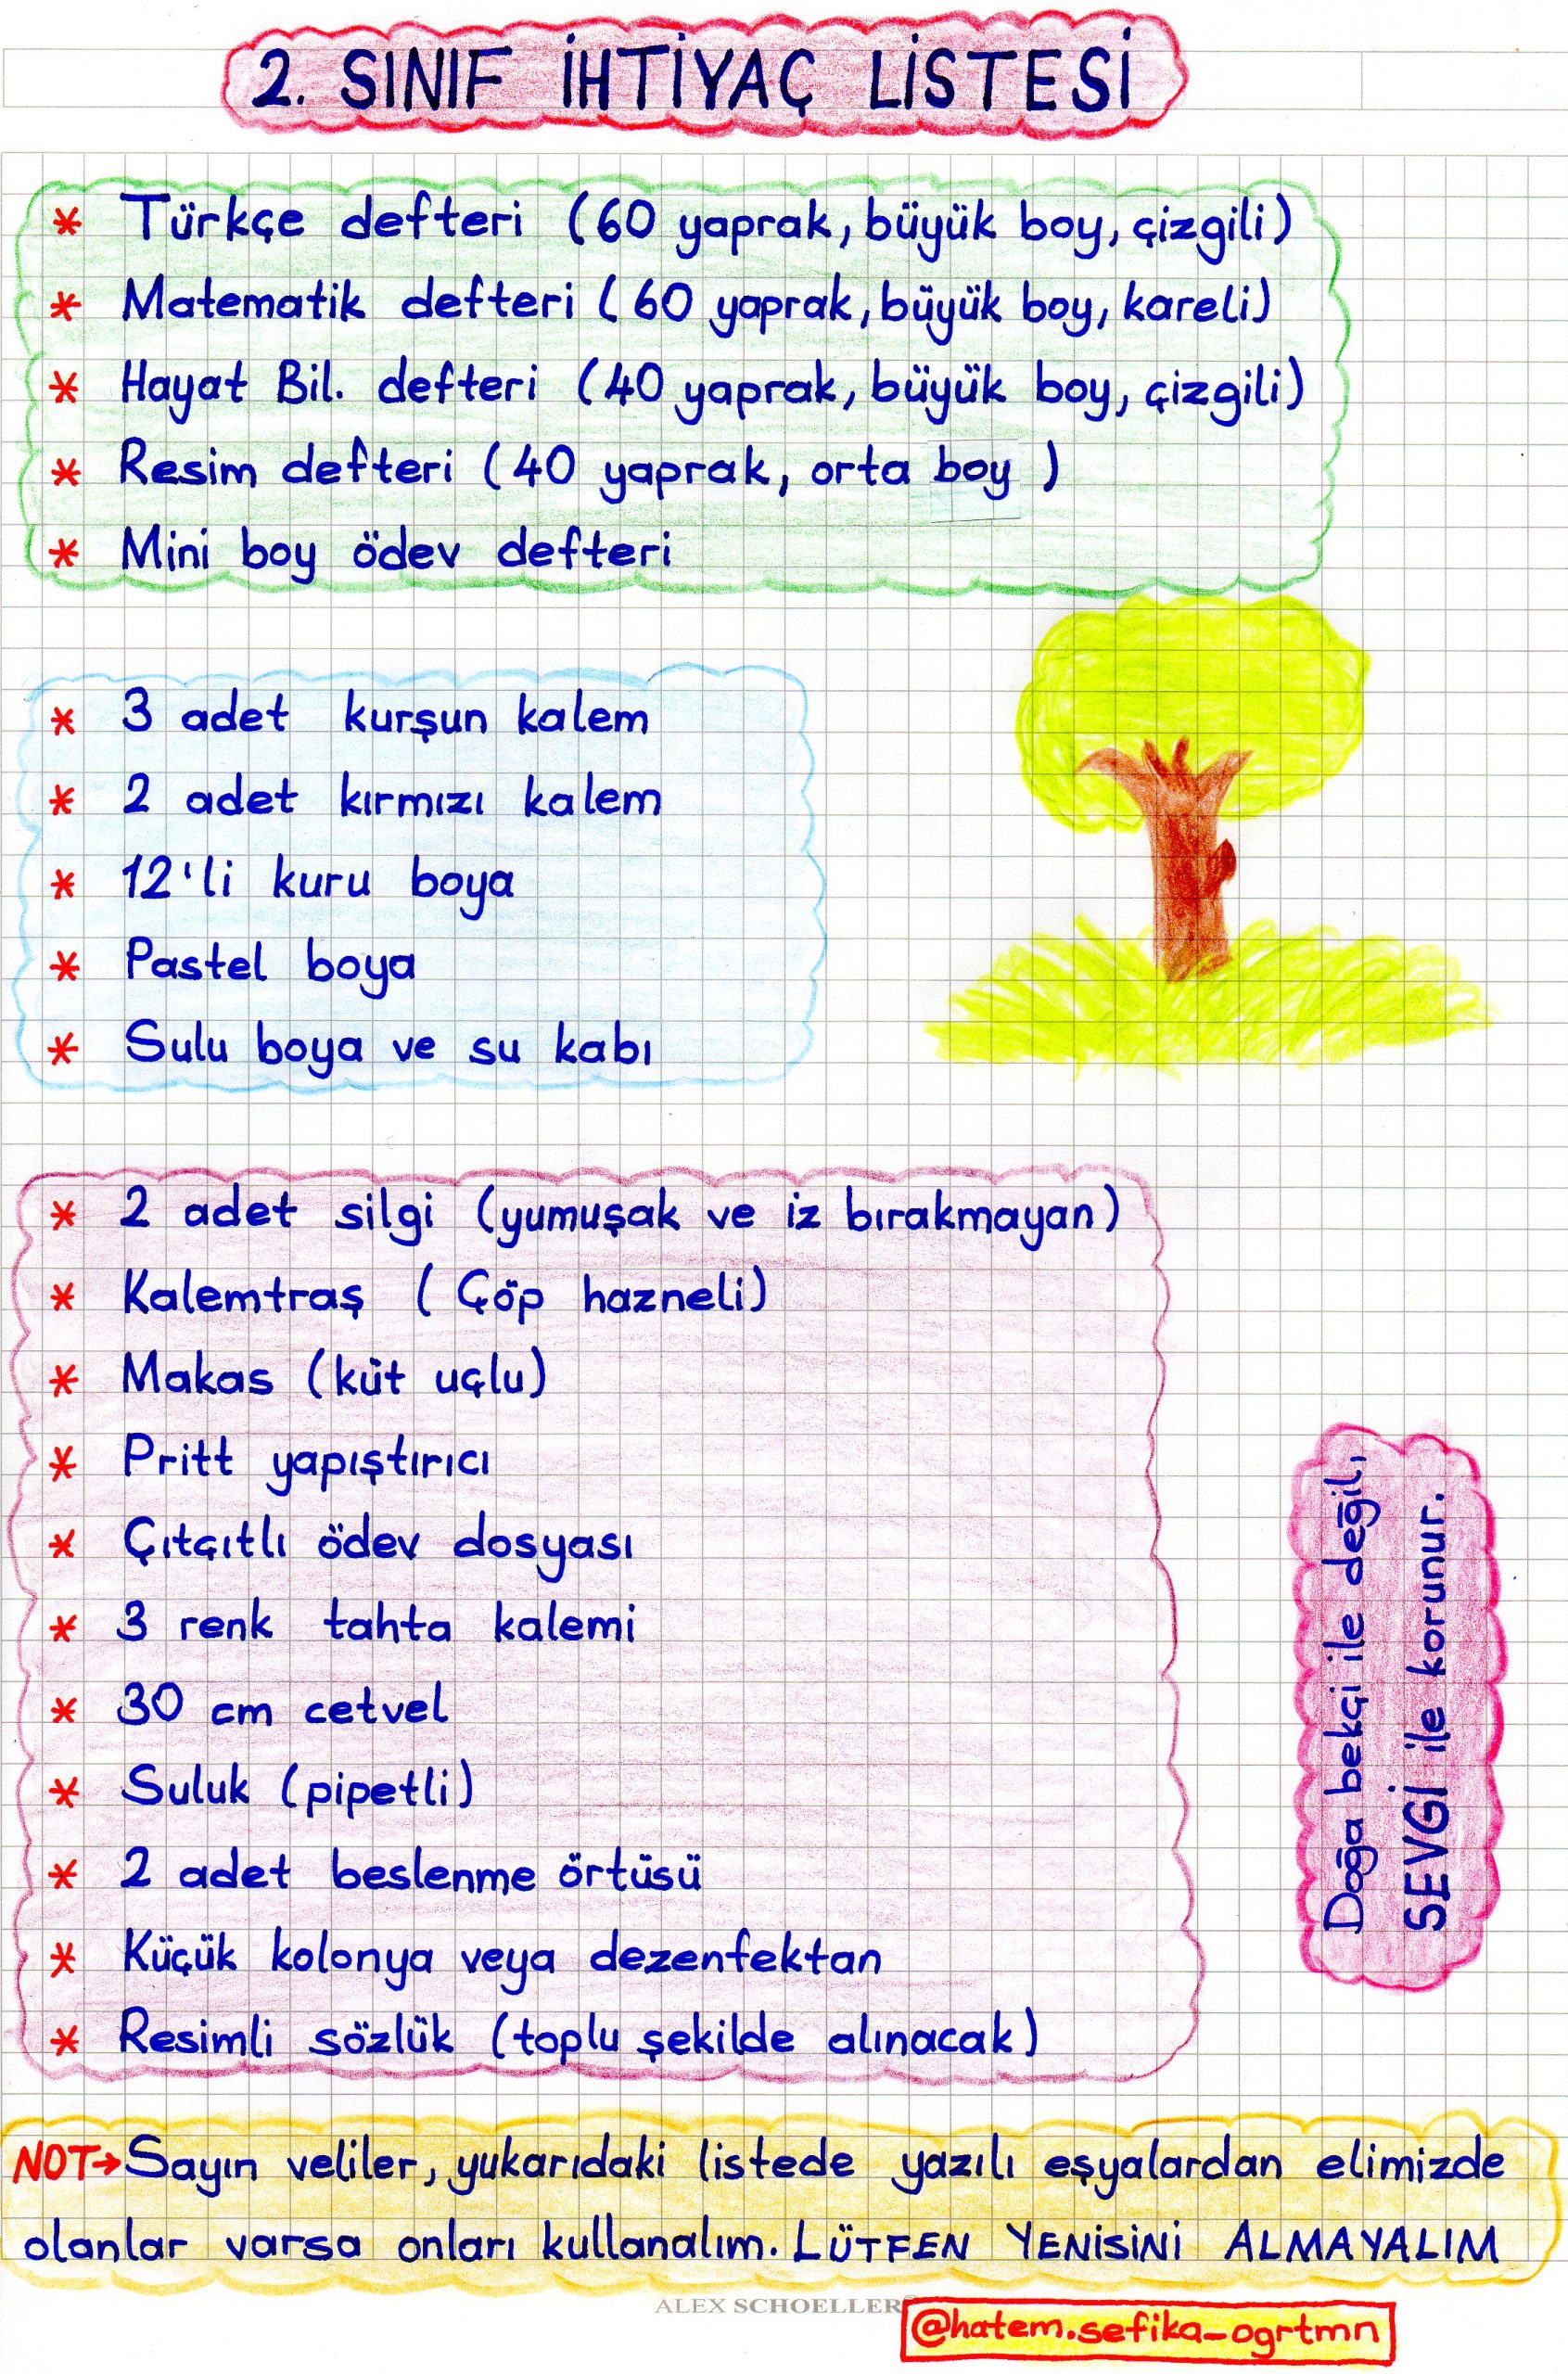 2. SINIF İHTİYAÇ LİSTESİ
* Türkçe defteri (60 yaprak, büyük boy, çizgili)
* Matematik defteri (60 yaprak, büyük boy, kareli)
* Hayat Bil. defteri (40 yaprak, büyük boy, çizgili)
* Resim defteri (40 yaprak, orta boy )
* Mini boy ödev defteri
* 3 adet kurşun kalem
* 2 adet kırmızı kalem
* 12'li kuru boya
* Pastel boya
* Sulu boya ve su kabı
* 2 adet silgi (yumuşak ve iz bırakmayan)
* Kalemtraş ( Çöp hazneli)
* Makas (küt uçlu)
* Pritt yapıştırıcı
* Çıtçıtlı ödev dosyası
* 3 renk tahta kalemi
* 30 cm cetvel
* Suluk (pipetli)
* 2 adet beslenme örtüsü
* Küçük kolonya veya dezenfektan
* Resimli sözlük (toplu şekilde alınacak)
Doğa bekçi ile değil,
SEVGİ ile korunur.
NOT→Sayın veliler, yukarıdaki listede yazılı eşyalardan elimizde
olanlar varsa onları kullanalım. LÜTFEN YENİSİNİ ALMAYALIM
ALEX SCHOELLER®
@hatem.sefika_ogrtmn